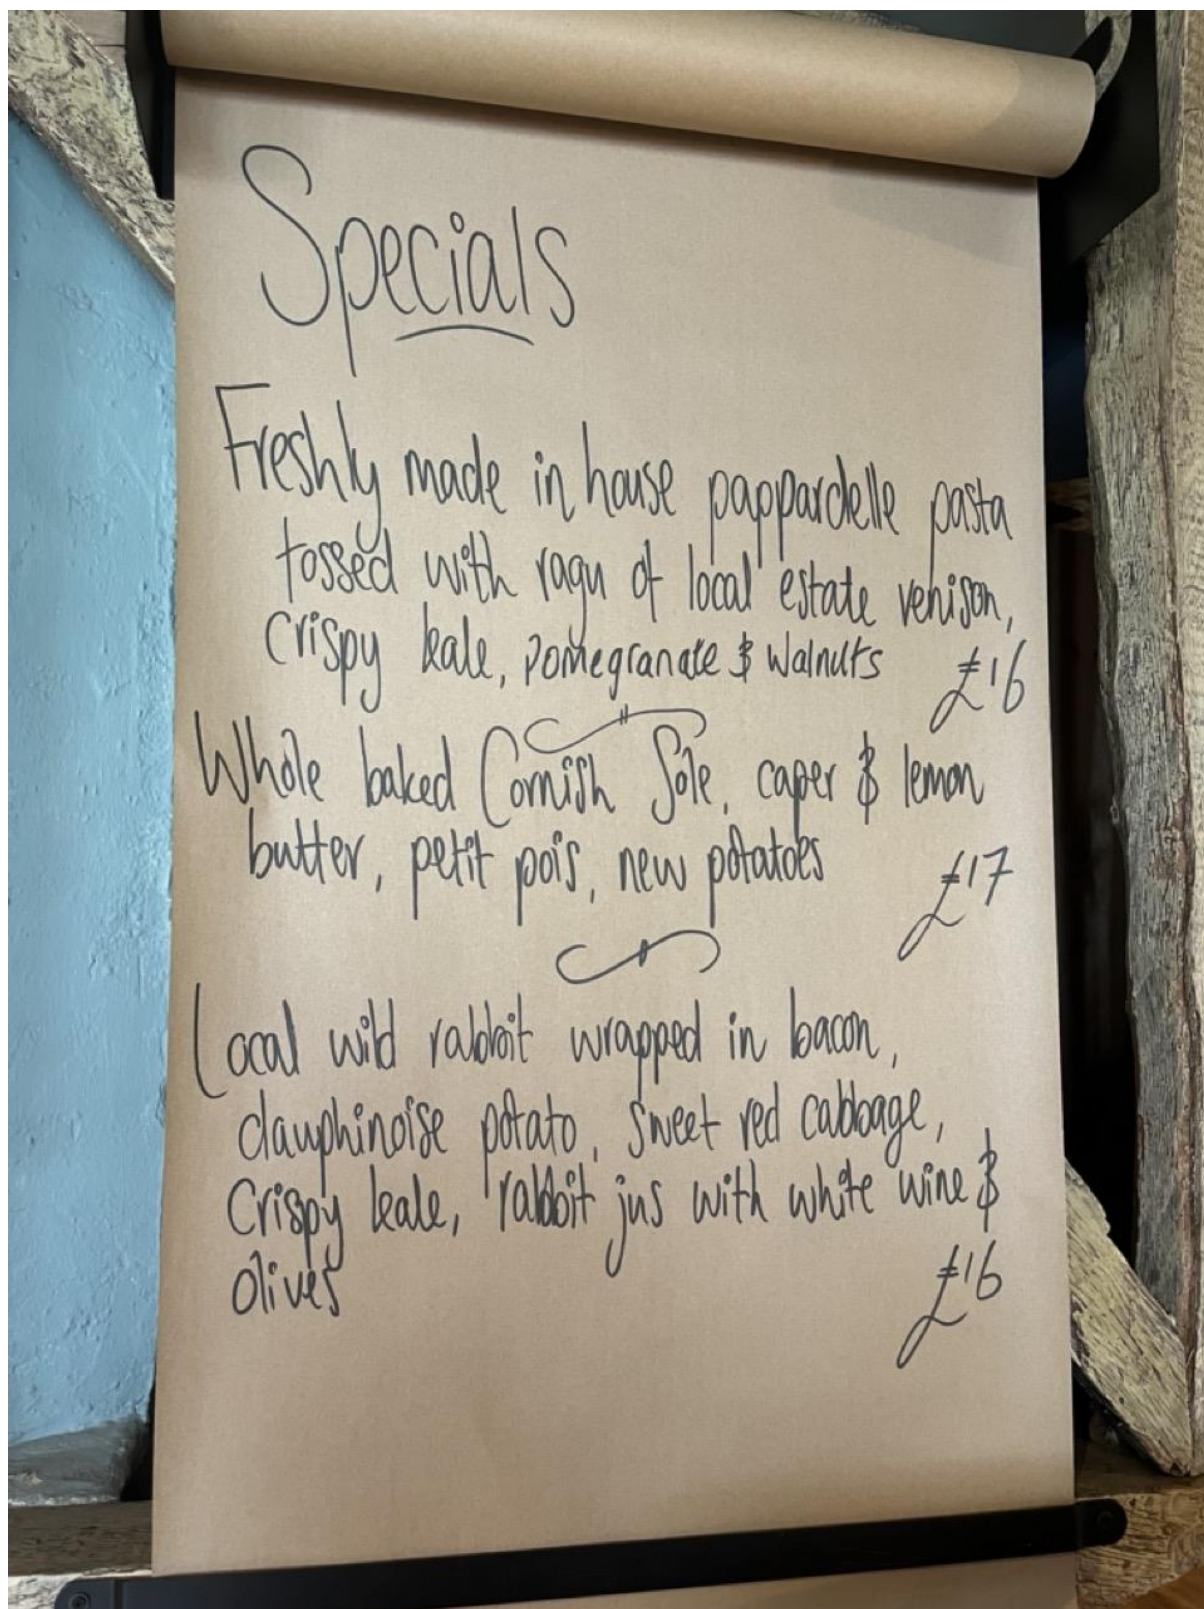 Specials
Freshly made in house pappardelle pasta
tossed with ragu of local estate venison,
Crispy kale, pomegranate & walnuts £16
Whole baked Cornish Sole, caper & lemon
butter, petit pois, new potatoes £17
Local wild rabbit wrapped in bacon,
dauphinoise potato, sweet red cabbage,
Crispy kale, rabbit jus with white wine &
Olives £16